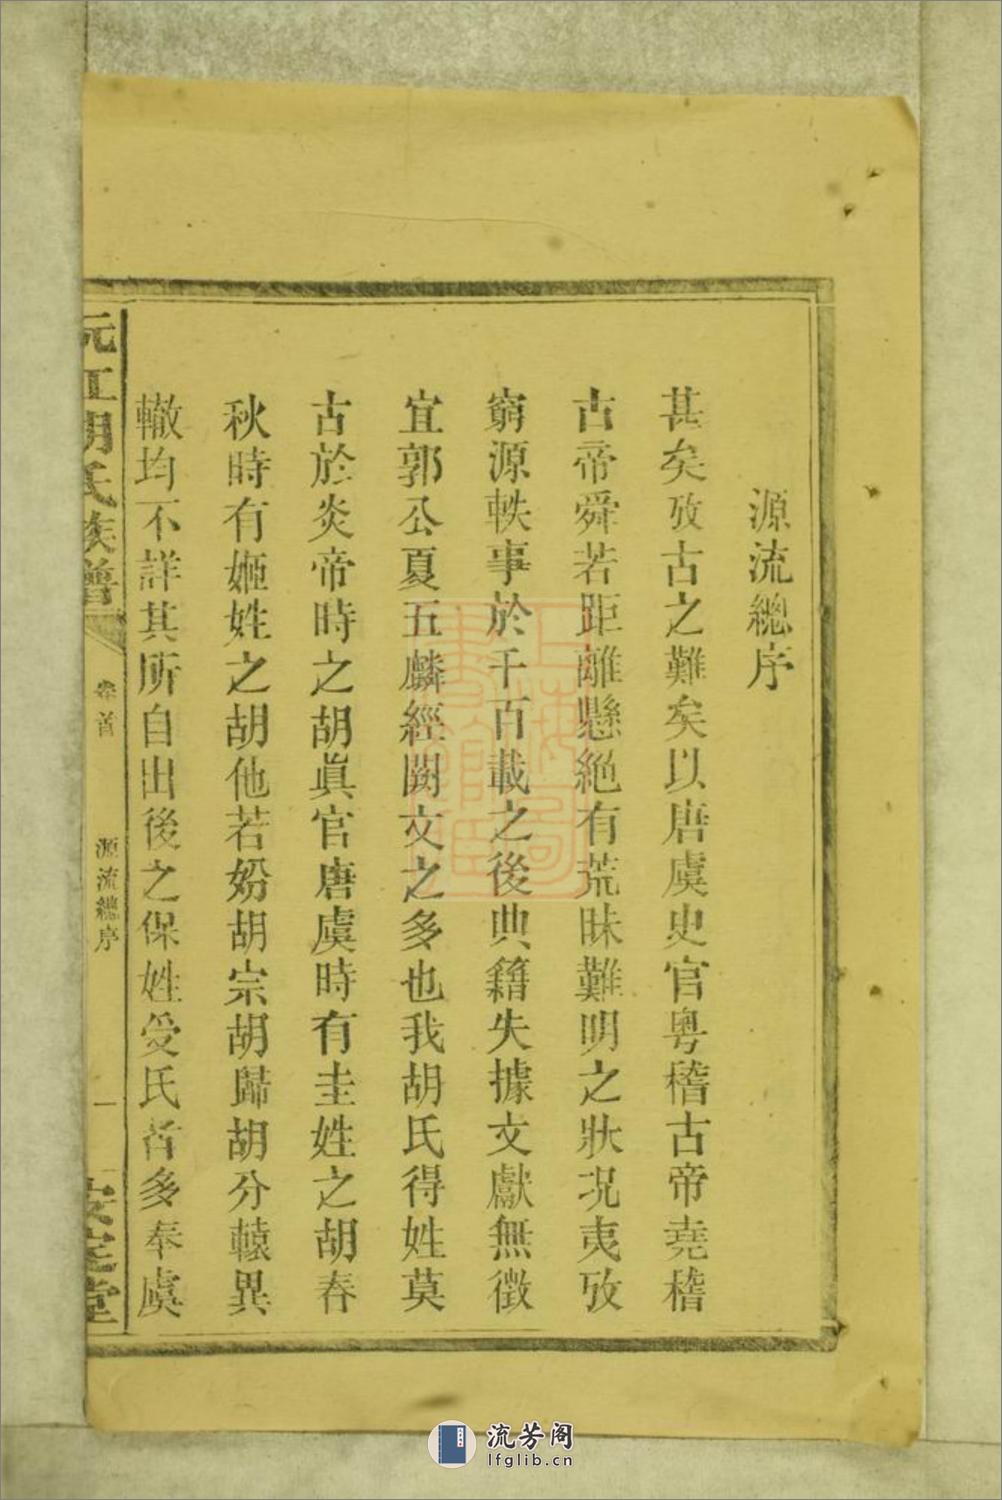 源流總序
甚矣攷古之難矣以唐虞史官粤稽古帝堯稽
古帝舜若距離懸絕有荒昧難明之狀况夷攷
窮源軼事於千百載之後典籍失據文獻無徵
宜郭公夏五麟經闕文之多也我胡氏得姓莫
古於炎帝時之胡眞官唐虞時有圭姓之胡春
秋時有姬姓之胡他若妢胡宗胡歸胡分轅異
轍均不詳其所自出後之保姓受氏者多奉虞
沅江胡氏族譜
卷首
源流總序
一
安定堂
流芳阁
lfglib.cn